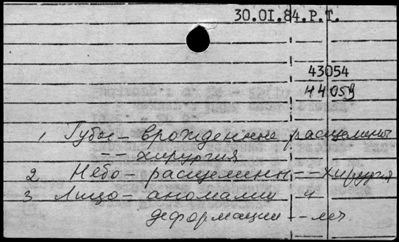 30.01.84.Р.Т.
43054
44059
1 Губы – врожденные расщелины
-- хирургия
2 Небо – расщелины -- хирургия
3 Лицо – аномалии и
деформации -- леч.